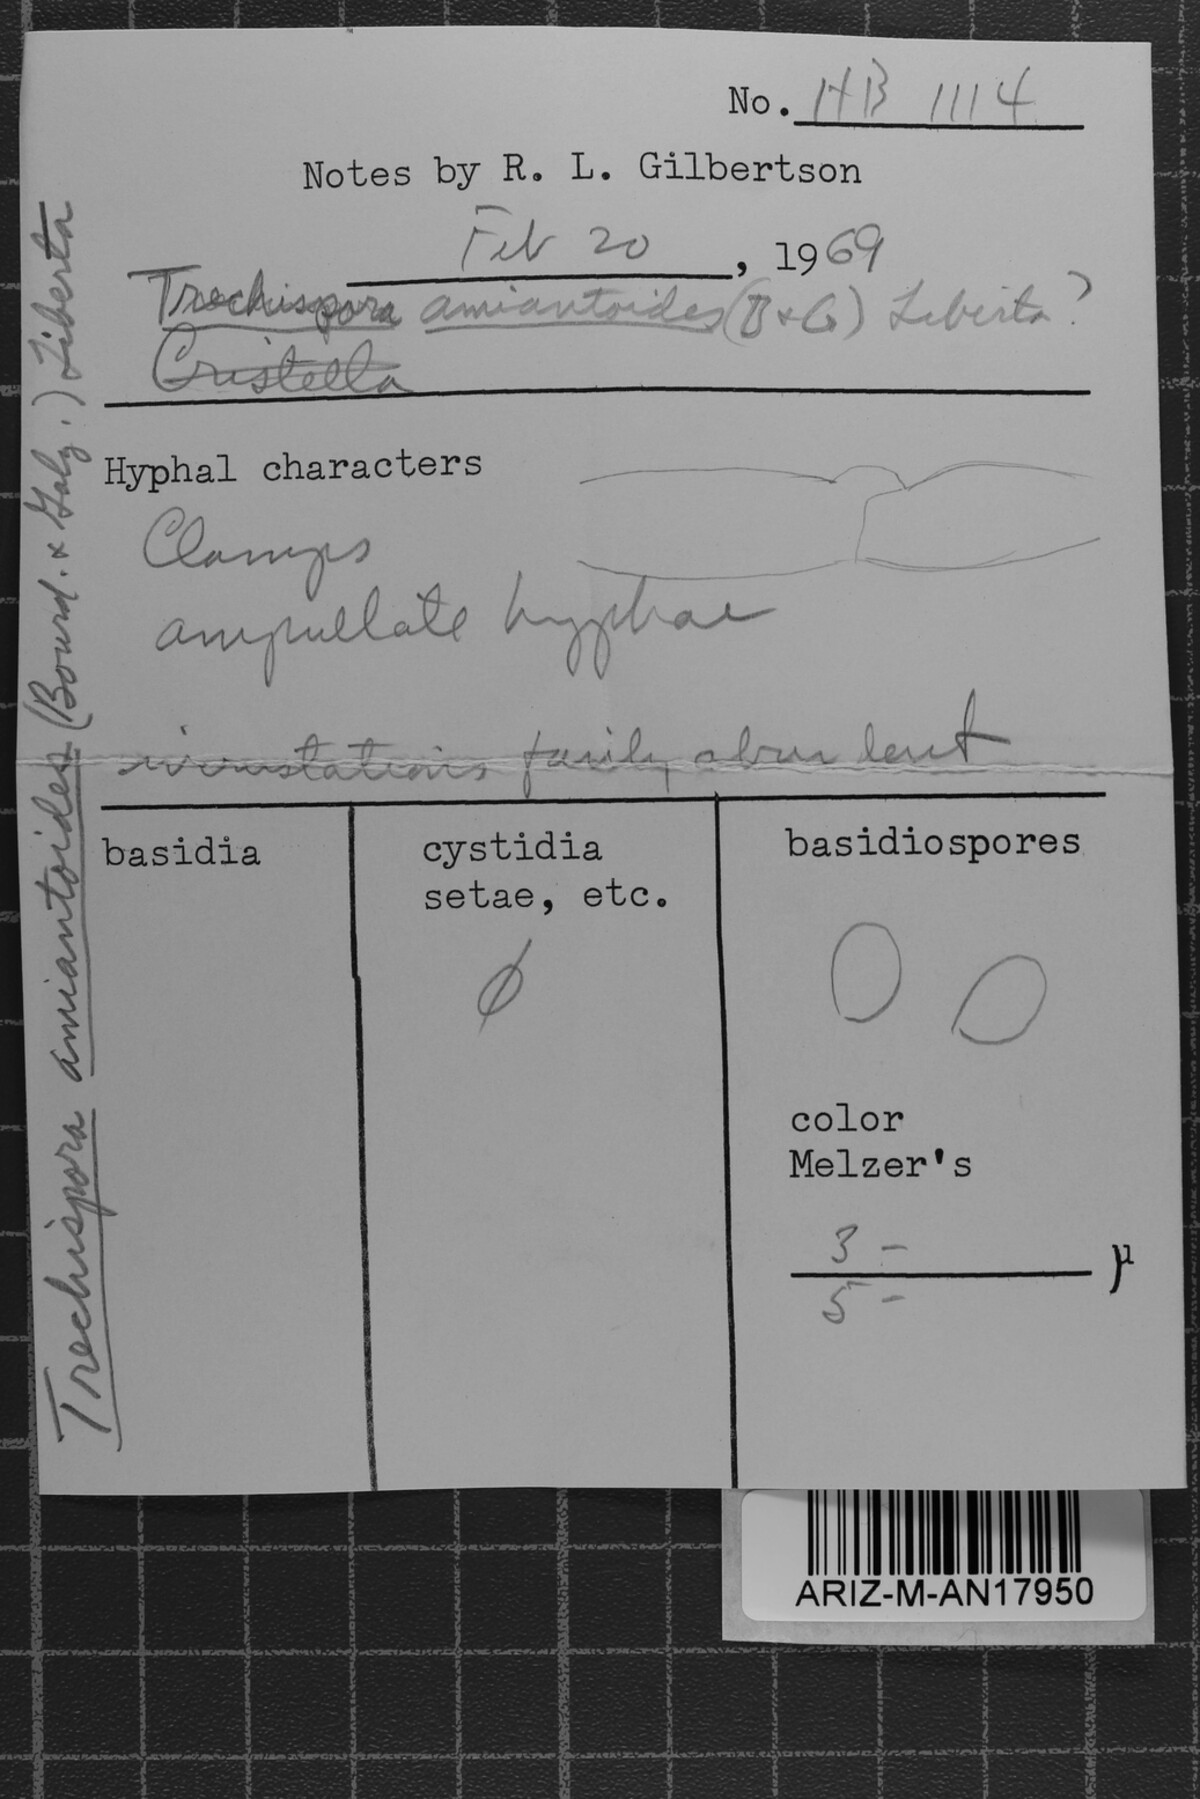 No. HB 1114
Notes by R. L. Gilbertson
Feb 20, 1969
Trechispora amiantoides (B & G) Liberta?
Cristella
Hyphal characters
Clamps
ampullate hyphae
incrustations fairly abundent
basidia
cystidia
setae, etc.
ϕ
basidiospores
color
Melzer's
3 -
5 -
μ
Trechispora amiantoides (Bourd. & Galz.) Liberta
ARIZ-M-AN17950